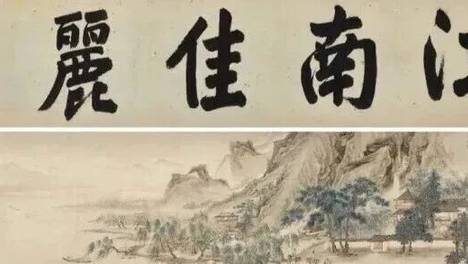 江南佳麗